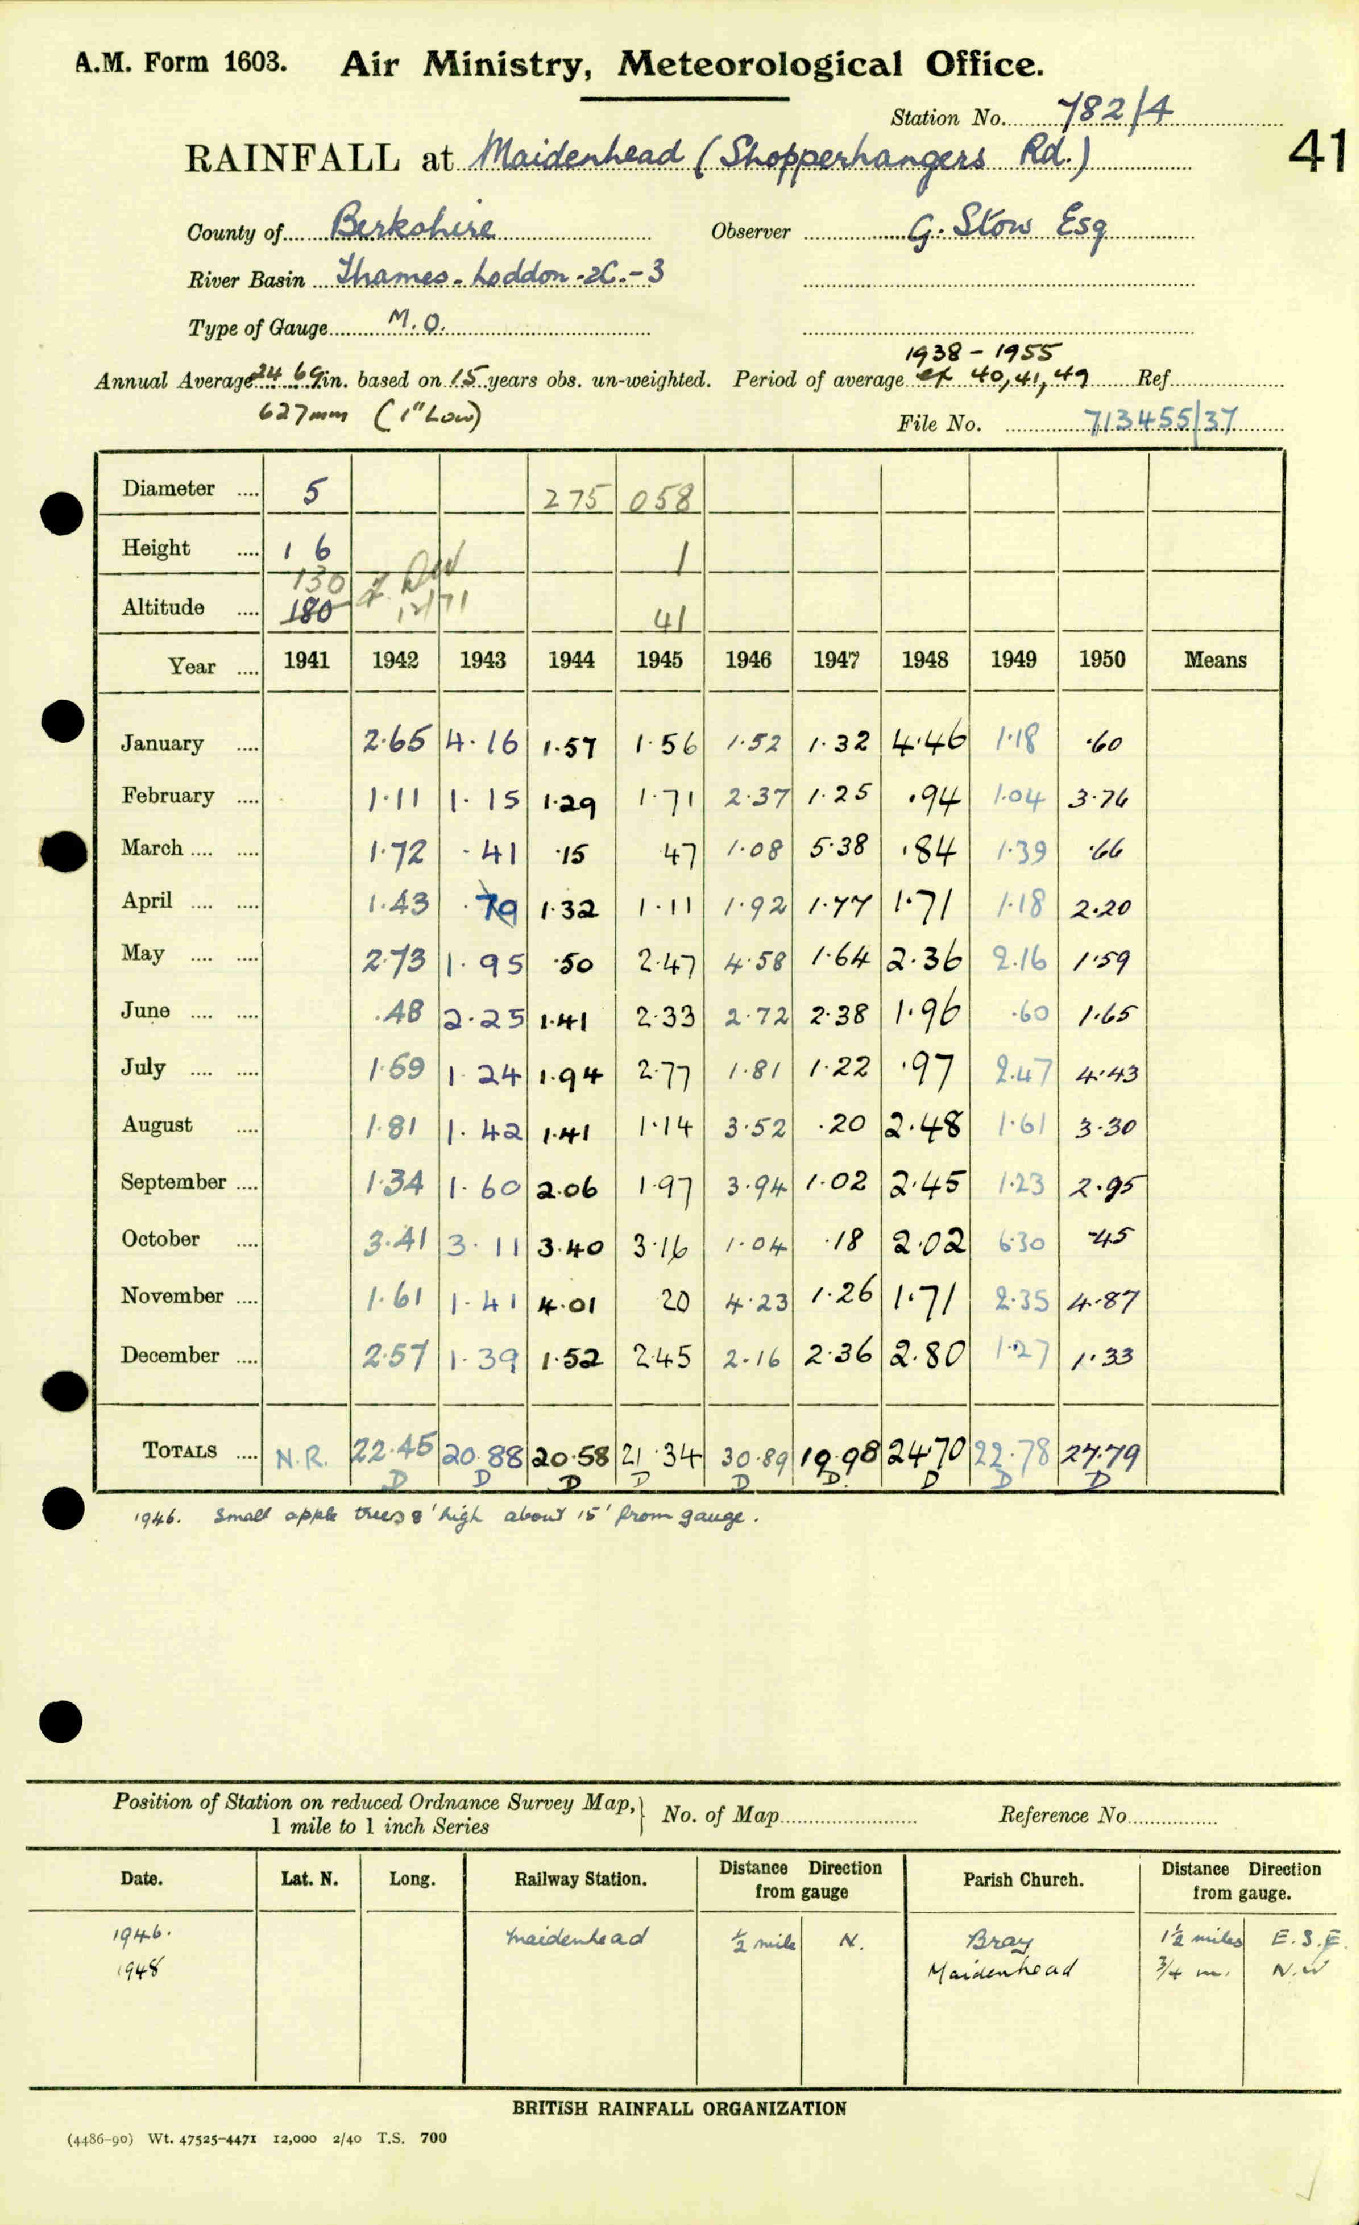 A.M. Form 1603. Air Ministry, Meteorological Office.
Station No. 782/4
RAINFALL at Maidenhead (Shopperhangers Rd.) 41
County of Berkshire Observer G. Stow Esq
River Basin Thames - Loddon - 2C. - 3
Type of Gauge M.O.
1938 - 1955
Annual Average 24.69 in. based on 15 years obs. un-weighted. Period of average ex 40, 41, 49 Ref
627mm (1" Low)
File No. 713455/37
Diameter 5 275 058
Height 1 6 1
130
Altitude 180 12/71 41
Year 1941 1942 1943 1944 1945 1946 1947 1948 1949 1950 Means
January 2.65 4.16 1.57 1.56 1.52 1.32 4.46 1.18 .60
February 1.11 1.15 1.29 1.71 2.37 1.25 .94 1.04 3.76
March 1.72 .41 .15 .47 1.08 5.38 .84 1.39 .66
April 1.43 .79 1.32 1.11 1.92 1.77 1.71 1.18 2.20
May 2.73 1.95 .50 2.47 4.58 1.64 2.36 2.16 1.59
June .48 2.25 1.41 2.33 2.72 2.38 1.96 .60 1.65
July 1.59 1.24 1.94 2.77 1.81 1.22 .97 2.47 4.43
August 1.81 1.42 1.41 1.14 3.52 .20 2.48 1.61 3.30
September 1.34 1.60 2.06 1.97 3.94 1.02 2.45 1.23 2.95
October 3.41 3.11 3.40 3.16 1.04 .18 2.02 6.30 .45
November 1.61 1.41 4.01 20 4.23 1.26 1.71 2.35 4.87
December 2.57 1.39 1.52 2.45 2.16 2.36 2.80 1.27 1.33
TOTALS N.R. 22.45 20.88 20.58 21.34 30.89 19.98 24.70 22.78 27.79
D D D D D D D D D
1946. Small apple trees 8' high about 15' from gauge.
Position of Station on reduced Ordnance Survey Map, 1 mile to 1 inch Series } No. of Map Reference No
Date. Lat. N. Long. Railway Station. Distance Direction from gauge Parish Church. Distance Direction from gauge.
1946. Maidenhead ½ mile N. Bray 1½ miles E.S.E.
1948 Maidenhead ¾ m. N.W
BRITISH RAINFALL ORGANIZATION
(4486-90) Wt. 47525-4471 12,000 2/40 T.S. 700